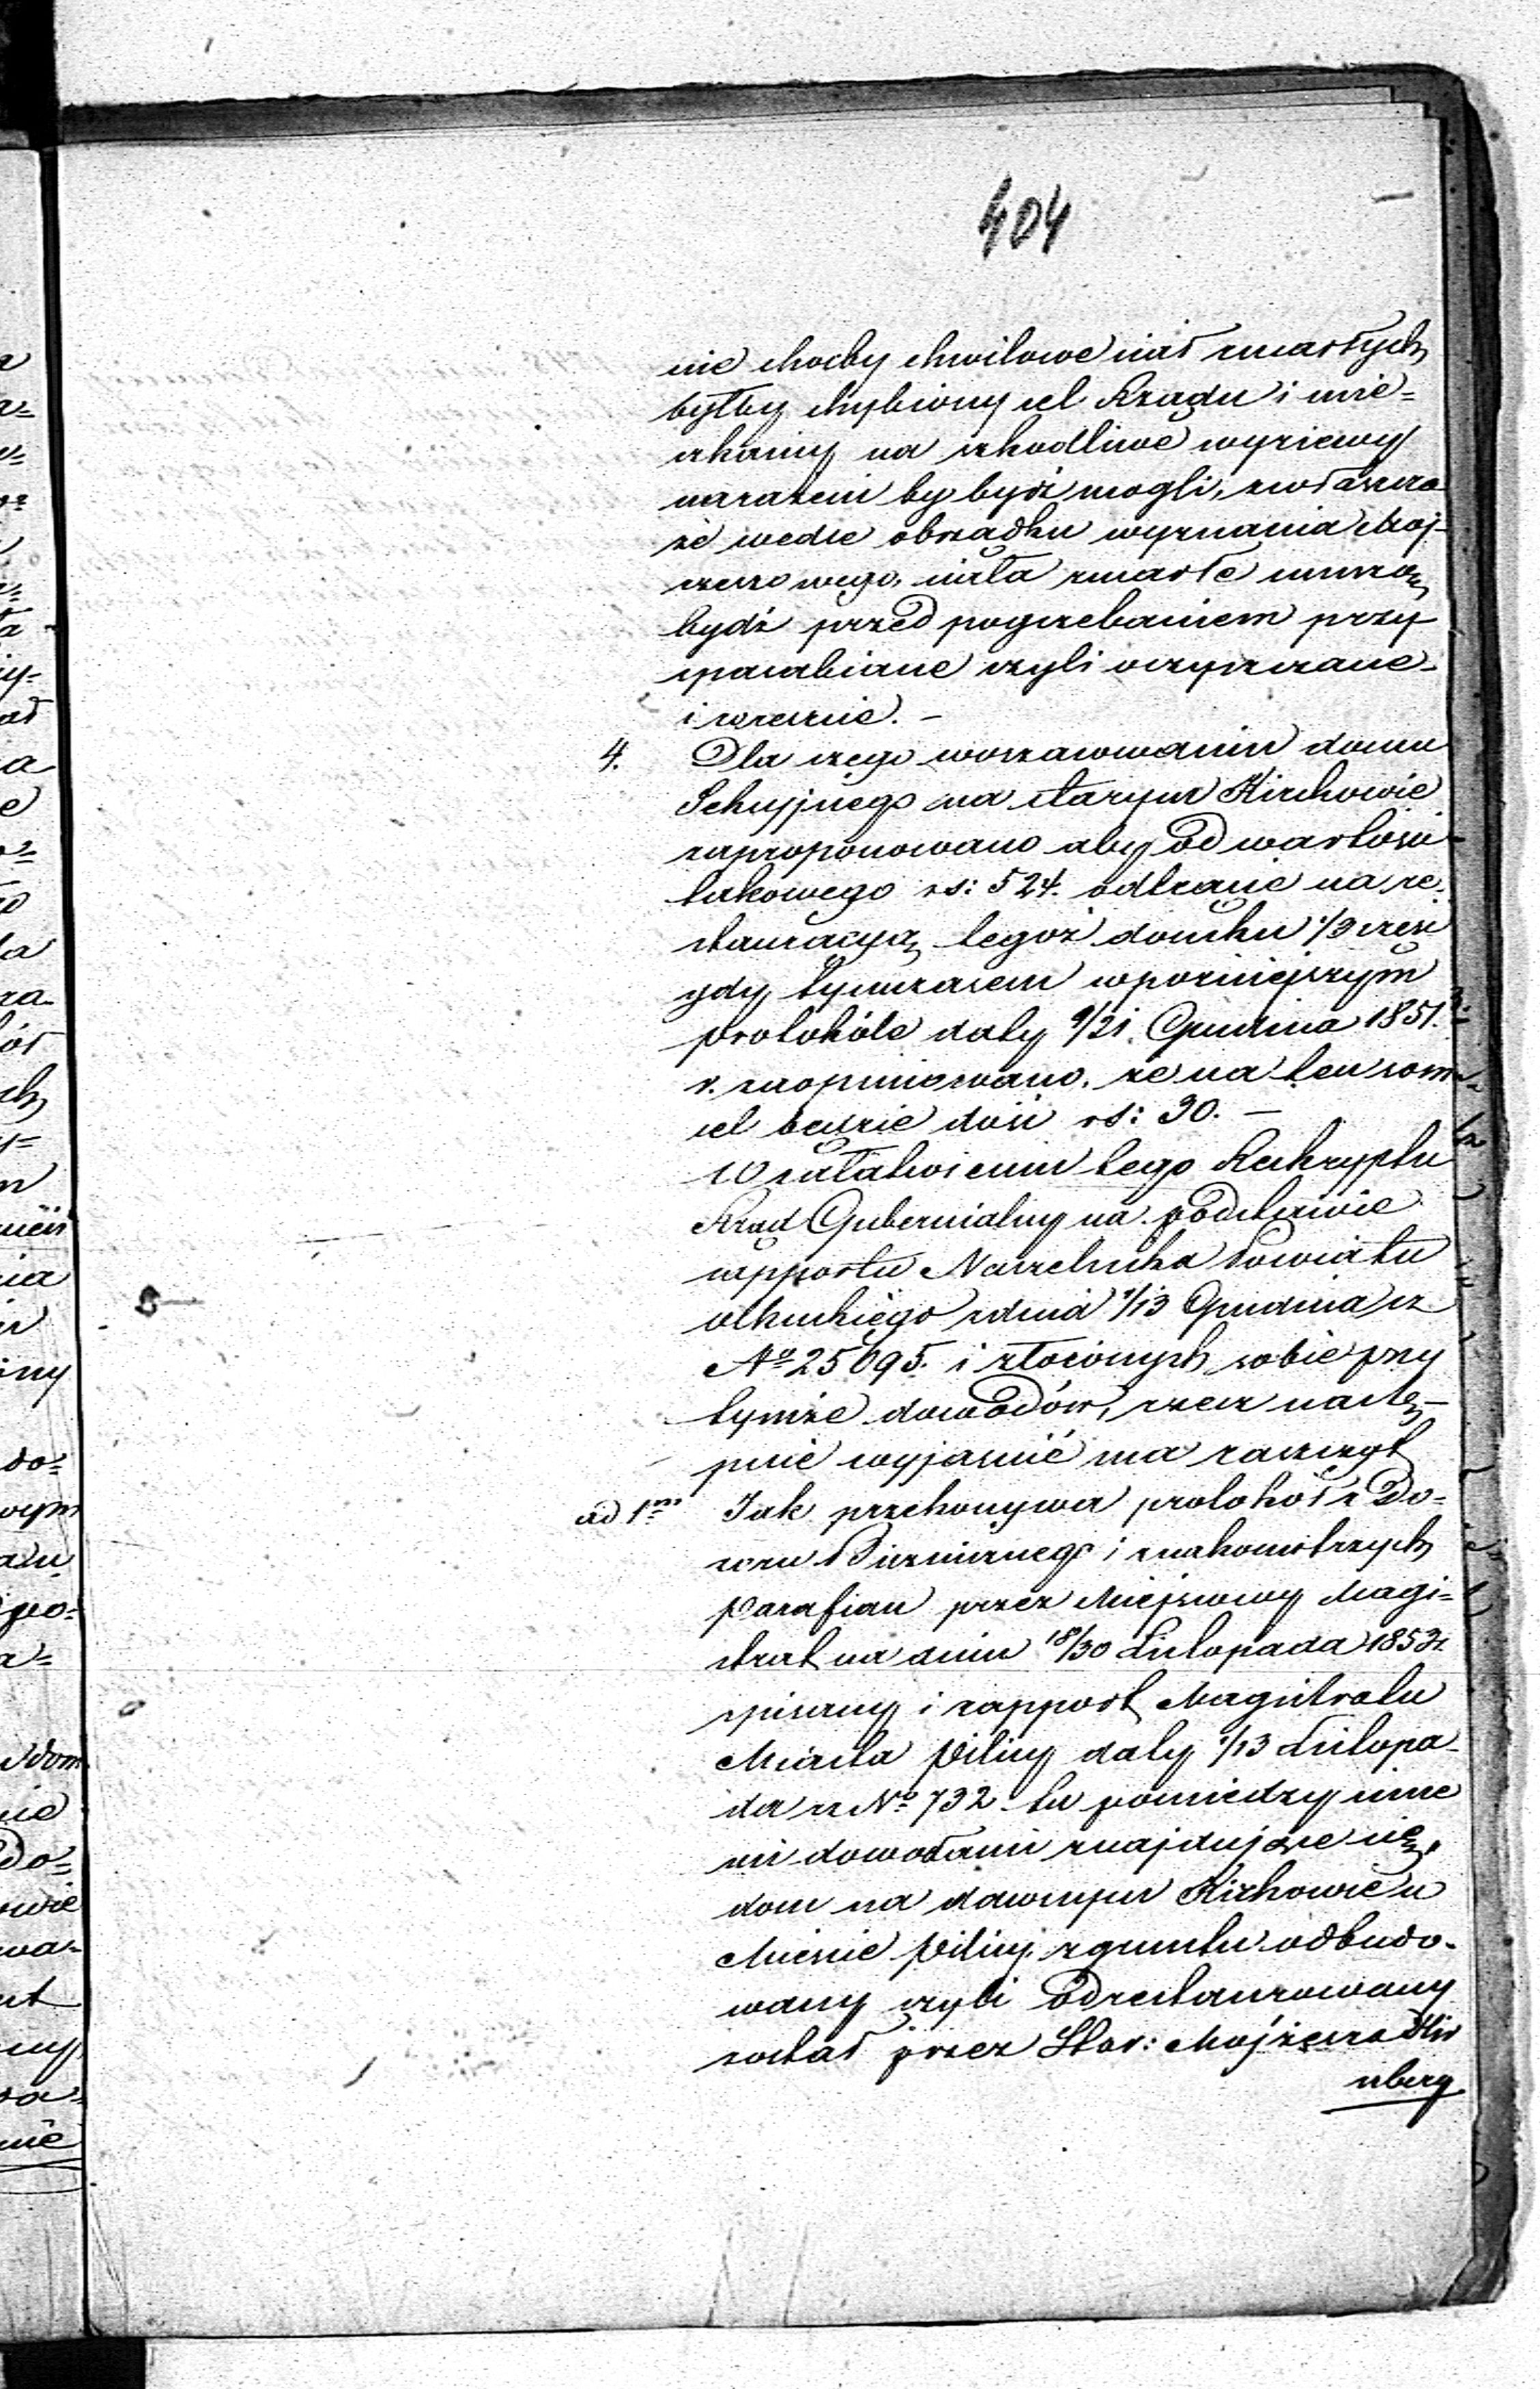 404
nie choćby chwilowe ciał zmarłych
byłby chybiony cel Rządu i mie=
szkańcy na szkodliwe wyziewy
narażeni by bydź mogli, zwłaszcza
że wedle obrządku wyznania Moj-
żeszowego, ciała zmarłe muszą
bydź przed pogrzebaniem przy
sposabiane czyli oczyszczane
i wreszcie. –
4. Dla czego w oszacowaniu domu
Schujnego na starym Kirchowie
zaproponowano aby od wartości
takowego rs: 524. odtrącić na re-
stauracyą tegoż domku 1/3 część
gdy tymczasem w poźniejszym
protokóle daty 9/21. Grudnia 1851.
r. zaopiniowano, że na ten sam
cel będzie dość rs: 30. –
W załatwieniu tego Reskryptu
Rząd Gubernialny na podstawie
rapportu Naczelnika Powiatu
Olkuskiego z dnia 1/13 Grudnia r z
No 25695. i złożonych sobie przy
tymże dowodów, rzecz nastę-
pnie wyjaśnić ma zaszczyt
ad 1mo Jak przekonywa protokół z Do=
zoru Bużniczego i znakomitrzych
Parafian przez Miejscowy Magi=
strat na dniu 18/30 Listopada 1853 r.
spisany i rapport Magistratu
Miasta Pilicy daty 1/13 Listopa-
da r z No 732 tu pomiedzy inne
mi dowodami znajdujące się,
dom na dawnym Kirchowie w
Mieście Pilicy z gruntu odbudo-
wany czyli odrestaurowany
został przez Star: Mojżesza Hir
nberg